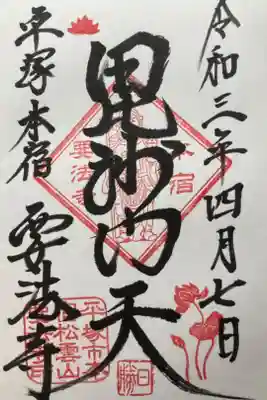 令和三年四月七日
毘沙門天
平塚本宿
要法寺
平塚市
松雲山
要法寺